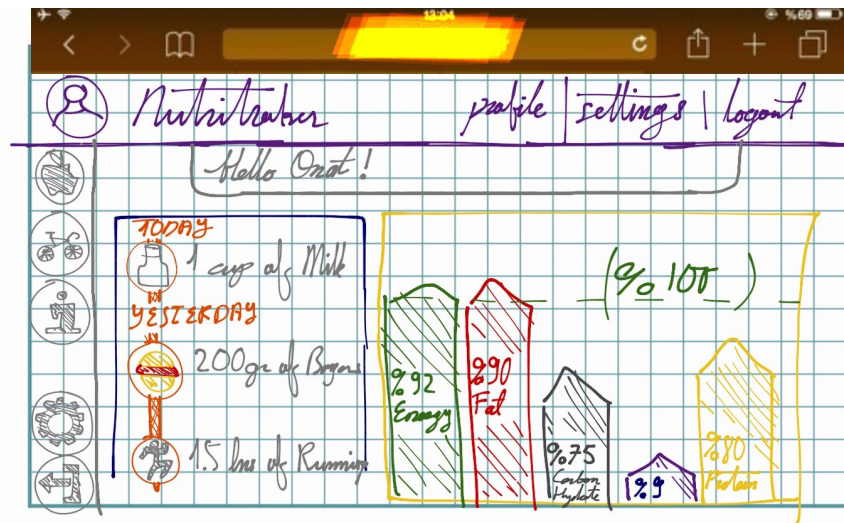 13:04
%69
Nutritraker
profile | settings | logout
Hello Onat!
TODAY
1 cup of Milk
YESTERDAY
200gr of
1.5 hrs of Running
(%100)
%92
Energy
%90
Fat
%75
Carbon
Hydrate
%9
%80
Protein